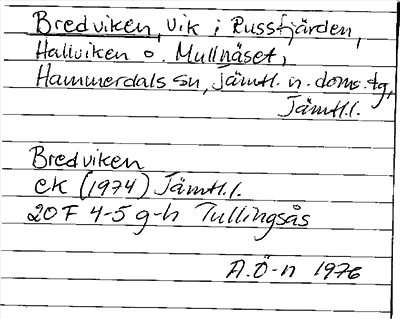 Bredviken, vik i Russfjärden,
Hallviken o. Mullnäset,
Hammerdals sn, Jämtl. n. doms. tg,
Jämtl. l.
Bredviken
ek (1974) Jämtl. l.
20F 4-5 g-h Tullingsås
A.Ö-n 1976